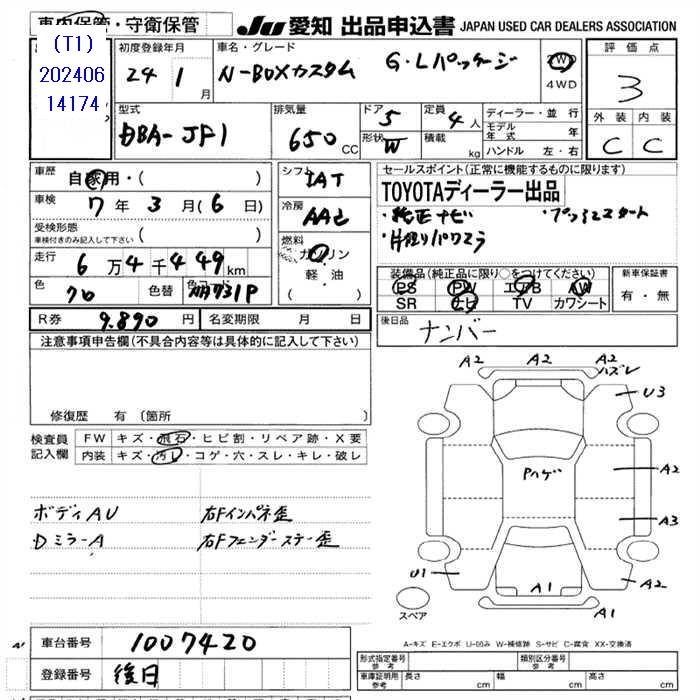 車内保管・守衛保管
JU 愛知 出品申込書 JAPAN USED CAR DEALERS ASSOCIATION
(T1)
202406
14174
初度登録年月
24 1 月
車名・グレード
N-BOXカスタム G・Lパッケージ
2WD
4WD
評価点
3
外装 内装
C C
型式
DBA-JF1
排気量
650 CC
ドア 5
形状 W
定員 4 人
積載 kg
ディーラー・並行
モデル年式 年
ハンドル 左・右
車歴
自家用・( )
車検
7年 3月(6日)
受検形態
車検付きのみ記入して下さい ( )
走行
6万4千449km
色 クロ 色替 色コード NH731P
シフト
IAT
冷房
AAC
燃料
ガソリン
軽・油
セールスポイント(正常に機能するものに限ります)
TOYOTAディーラー出品
・純正ナビ ・プッシュスタート
・片側パワスラ
装備品(純正品に限り○をつけてください)
PS PW エアB AW
SR ナビ TV カワシート
新車保証書
有・無
R券 9.890 円 名変期限 月 日
後日品
ナンバー
注意事項申告欄(不具合内容等は具体的に記入して下さい)
修復歴 有 〔箇所
検査員
記入欄
FW キズ・飛石・ヒビ割・リペア跡・X要
内装 キズ・汚レ・コゲ・穴・スレ・キレ・破レ
ボディAU 右Fインパネ歪
Dミラー A 右Fフェンダーステー歪
A2 A2 A2
ハズレ
U3
Pハゲ
A2
A3
U1 A1 A2
A1
スペア
A-キズ E-エクボ U-凹み W-補修跡 S-サビ C-腐食 XX-交換済
A1
車台番号 1007420
登録番号 後日
形式指定番号
参考
類別区分番号
参考
車庫証明用
参考
長さ cm 幅 cm 高さ cm